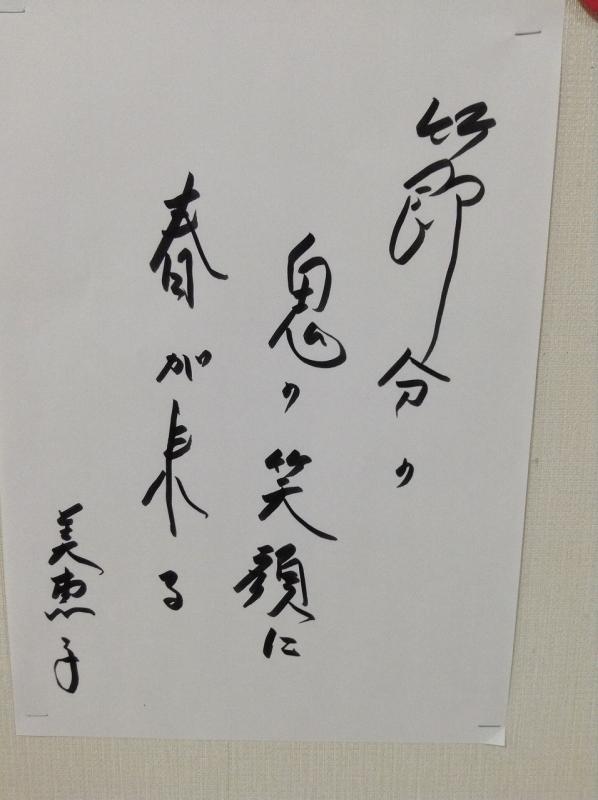 節分の
鬼の笑顔に
春が来る
美恵子